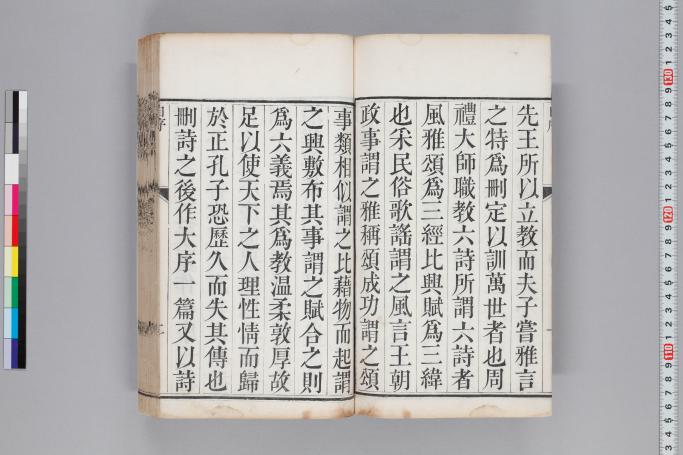 先王所以立教而夫子嘗雅言
之特爲刪定以訓萬世者也周
禮大師職教六詩所謂六詩者
風雅頌爲三經比與賦爲三緯
也采民俗歌謠謂之風言王朝
政事謂之雅稱頌成功謂之頌
事類相似謂之比藉物而起謂
之興敷布其事謂之賦合之則
爲六義焉其爲教溫柔敦厚故
足以使天下之人理性情而歸
於正孔子恐歷久而失其傳也
刪詩之後作大序一篇又以詩